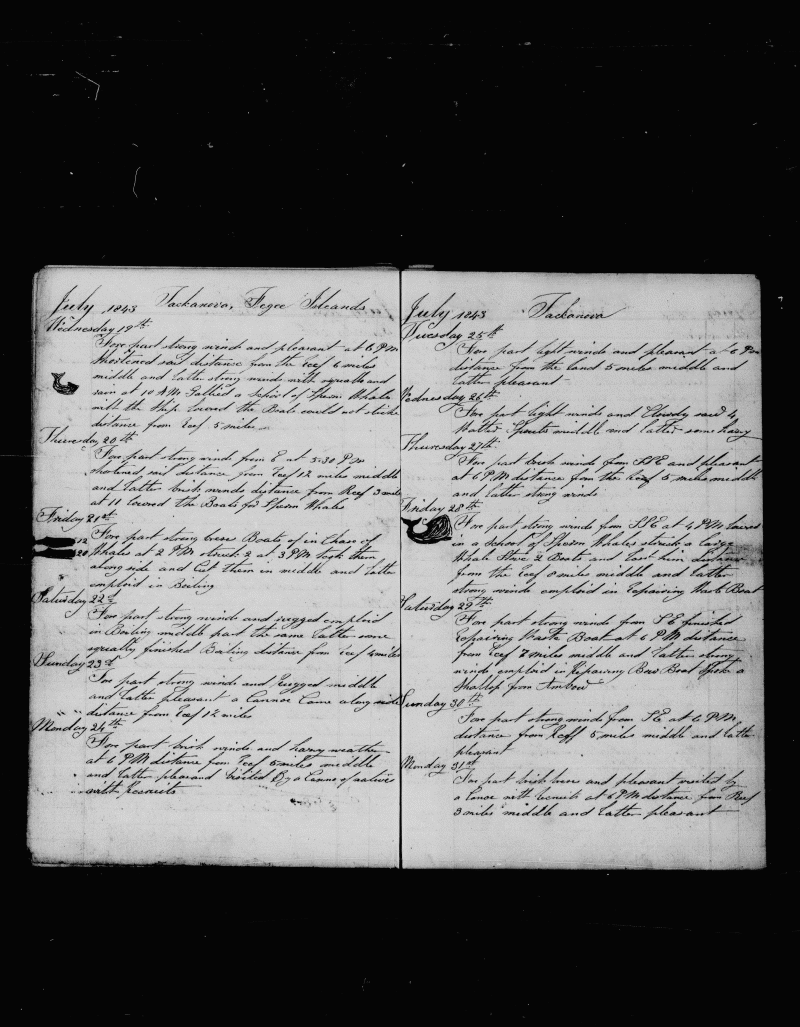 July 1843 Tackanova, Fegee Islands
Wednesday 19th
Fore part strong winds and pleasant at 6 PM
shortened sail distance from the Reef 6 miles
middle and latter strong winds with squalls and
rain at 10 AM Gallied a School of Sperm Whales
with the Ship lowerd the Boats could not strike
distance from Reef 5 miles
Thursday 20th
Fore part strong winds from E at 5.30 PM
shortened sail distance from Reef 12 miles middle
and latter brisk winds distance from Reef 3 miles
at 11 lowered the Boats for Sperm Whales
Friday 21st
12 Fore part strong brese Boats of in Chase of
20 Whales at 2 PM struck 2 at 3 PM took them
along side and Cut them in middle and latter
emploid in Boiling
Saturday 22d
Fore part strong winds and rugged emploid
in Boiling middle part the same latter some
squally finished Boiling distance from Reef 4 miles
Sunday 23d
Fore part strong winds and Rugged middle
and latter pleasant a Cannoe Came along side
distance from Reef 12 miles
Monday 24th
Fore part brisk winds and havy weather
at 6 PM distance from Reef 5 miles middle
and latter pleasand visited By a Canne of natives
with Recruits
July 1843 Tackanova
Tuesday 25th
Fore part light winds and pleasant at 6 Pm
distance from the land 5 miles middle and
latter pleasant
Wednesday 26th
Fore part light winds and Cloudy
Spouts middle and latter some hazy
Thursday 27th
Fore part brisk winds from SSE and pleasant
at 6 PM distance from the Reef 5 miles middle
and latter strong winds
Friday 28th
Fore part strong winds from SSE at 4 PM lowered
in a School of Sperm Whales struck a large
Whale Stove 2 Boats and lost him distance
from the Reef 8 miles middle and latter
strong winds emploid in repairing Waist Boat
Saturday 29th
Fore part strong winds from SE finished
repairing Waist Boat at 6 PM distance
from Reef 7 miles middle and latter strong
winds emploid in Repairing Bow Boat spoke a
Shallop from Ambow
Sunday 30th
Fore part strong winds from SE at 6 PM
distance from Reff 5 miles middle and latter
pleasant
Monday 31st
Fore part brisk brese and pleasant visited by
a Canoe with recruits at 6 PM distance from Reef
3 miles middle and latter pleasant